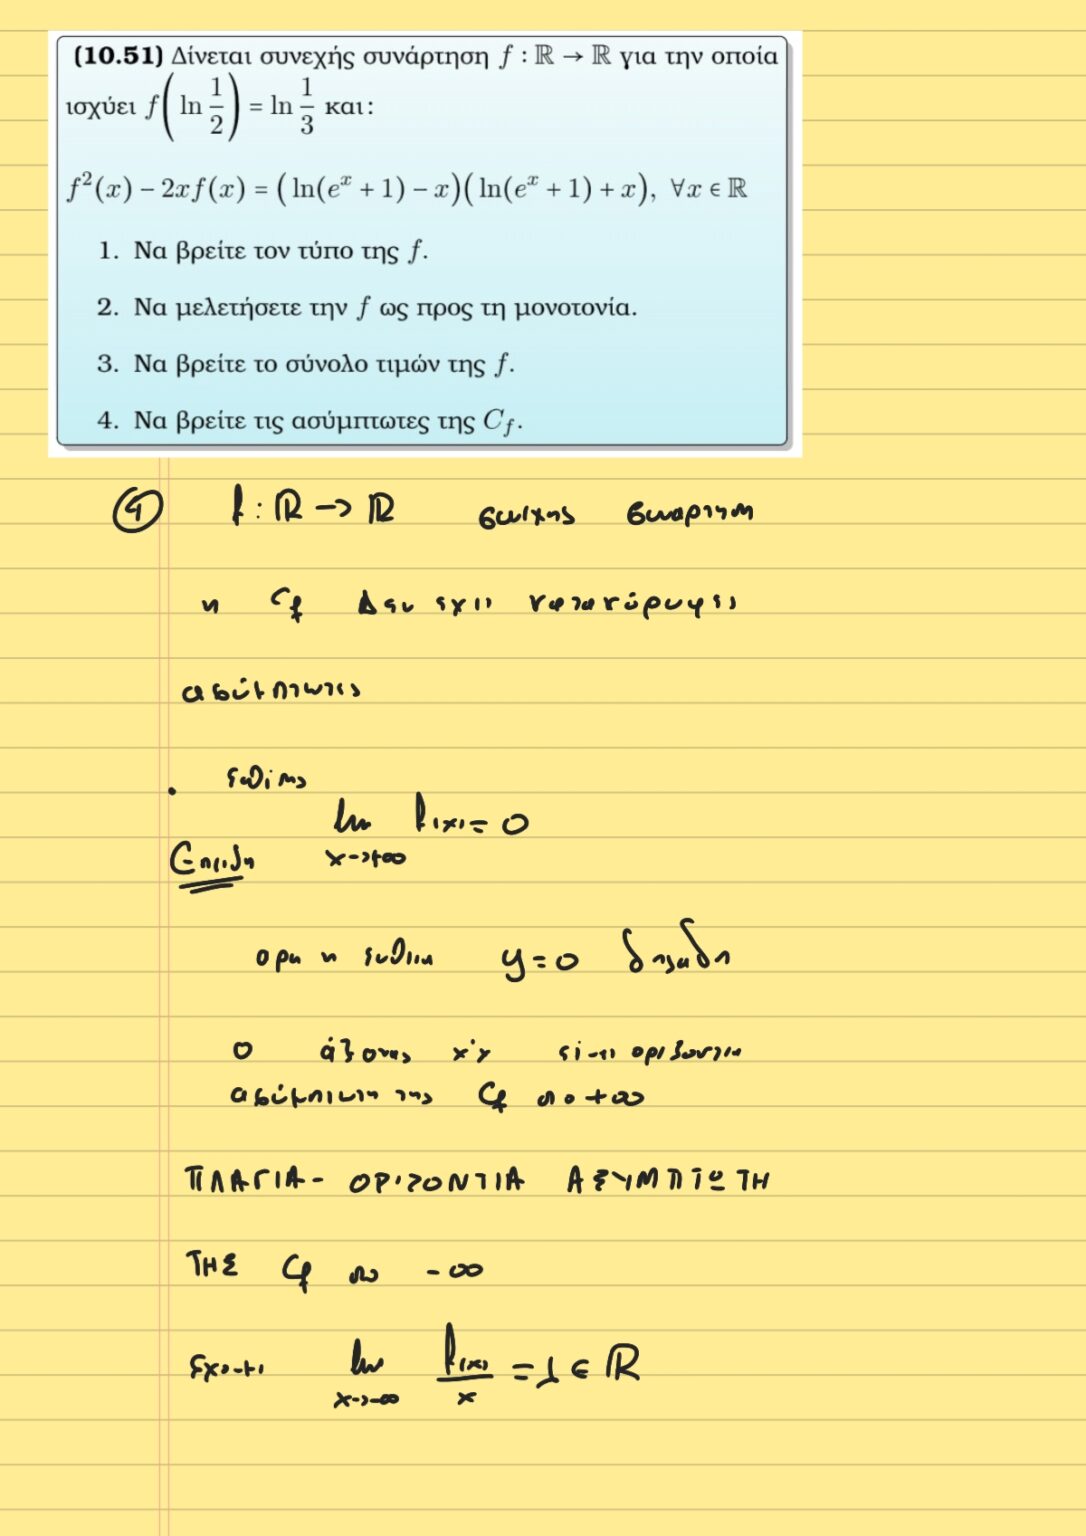 (10.51) Δίνεται συνεχής συνάρτηση f : ℝ → ℝ για την οποία
ισχύει f(ln 1/2) = ln 1/3 και:
f²(x) − 2xf(x) = (ln(eˣ + 1) − x)(ln(eˣ + 1) + x), ∀x ∈ ℝ
1. Να βρείτε τον τύπο της f.
2. Να μελετήσετε την f ως προς τη μονοτονία.
3. Να βρείτε το σύνολο τιμών της f.
4. Να βρείτε τις ασύμπτωτες της C_f.
④ f : ℝ → ℝ συνεχης συναρτηση
η C_f Δεν εχει κατακόρυφες
ασύμπτωτες
• επίσης
lim f(x) = 0
Επειδη x→+∞
αρα η ευθεια y=0 δηλαδη
ο άξονας x'x είναι οριζοντια
ασύμπτωτη της C_f στο +∞
ΠΛΑΓΙΑ - ΟΡΙΖΟΝΤΙΑ ΑΣΥΜΠΤΩΤΗ
ΤΗΣ C_f στο -∞
εχουμε lim x→-∞ f(x)/x = 1 ∈ ℝ